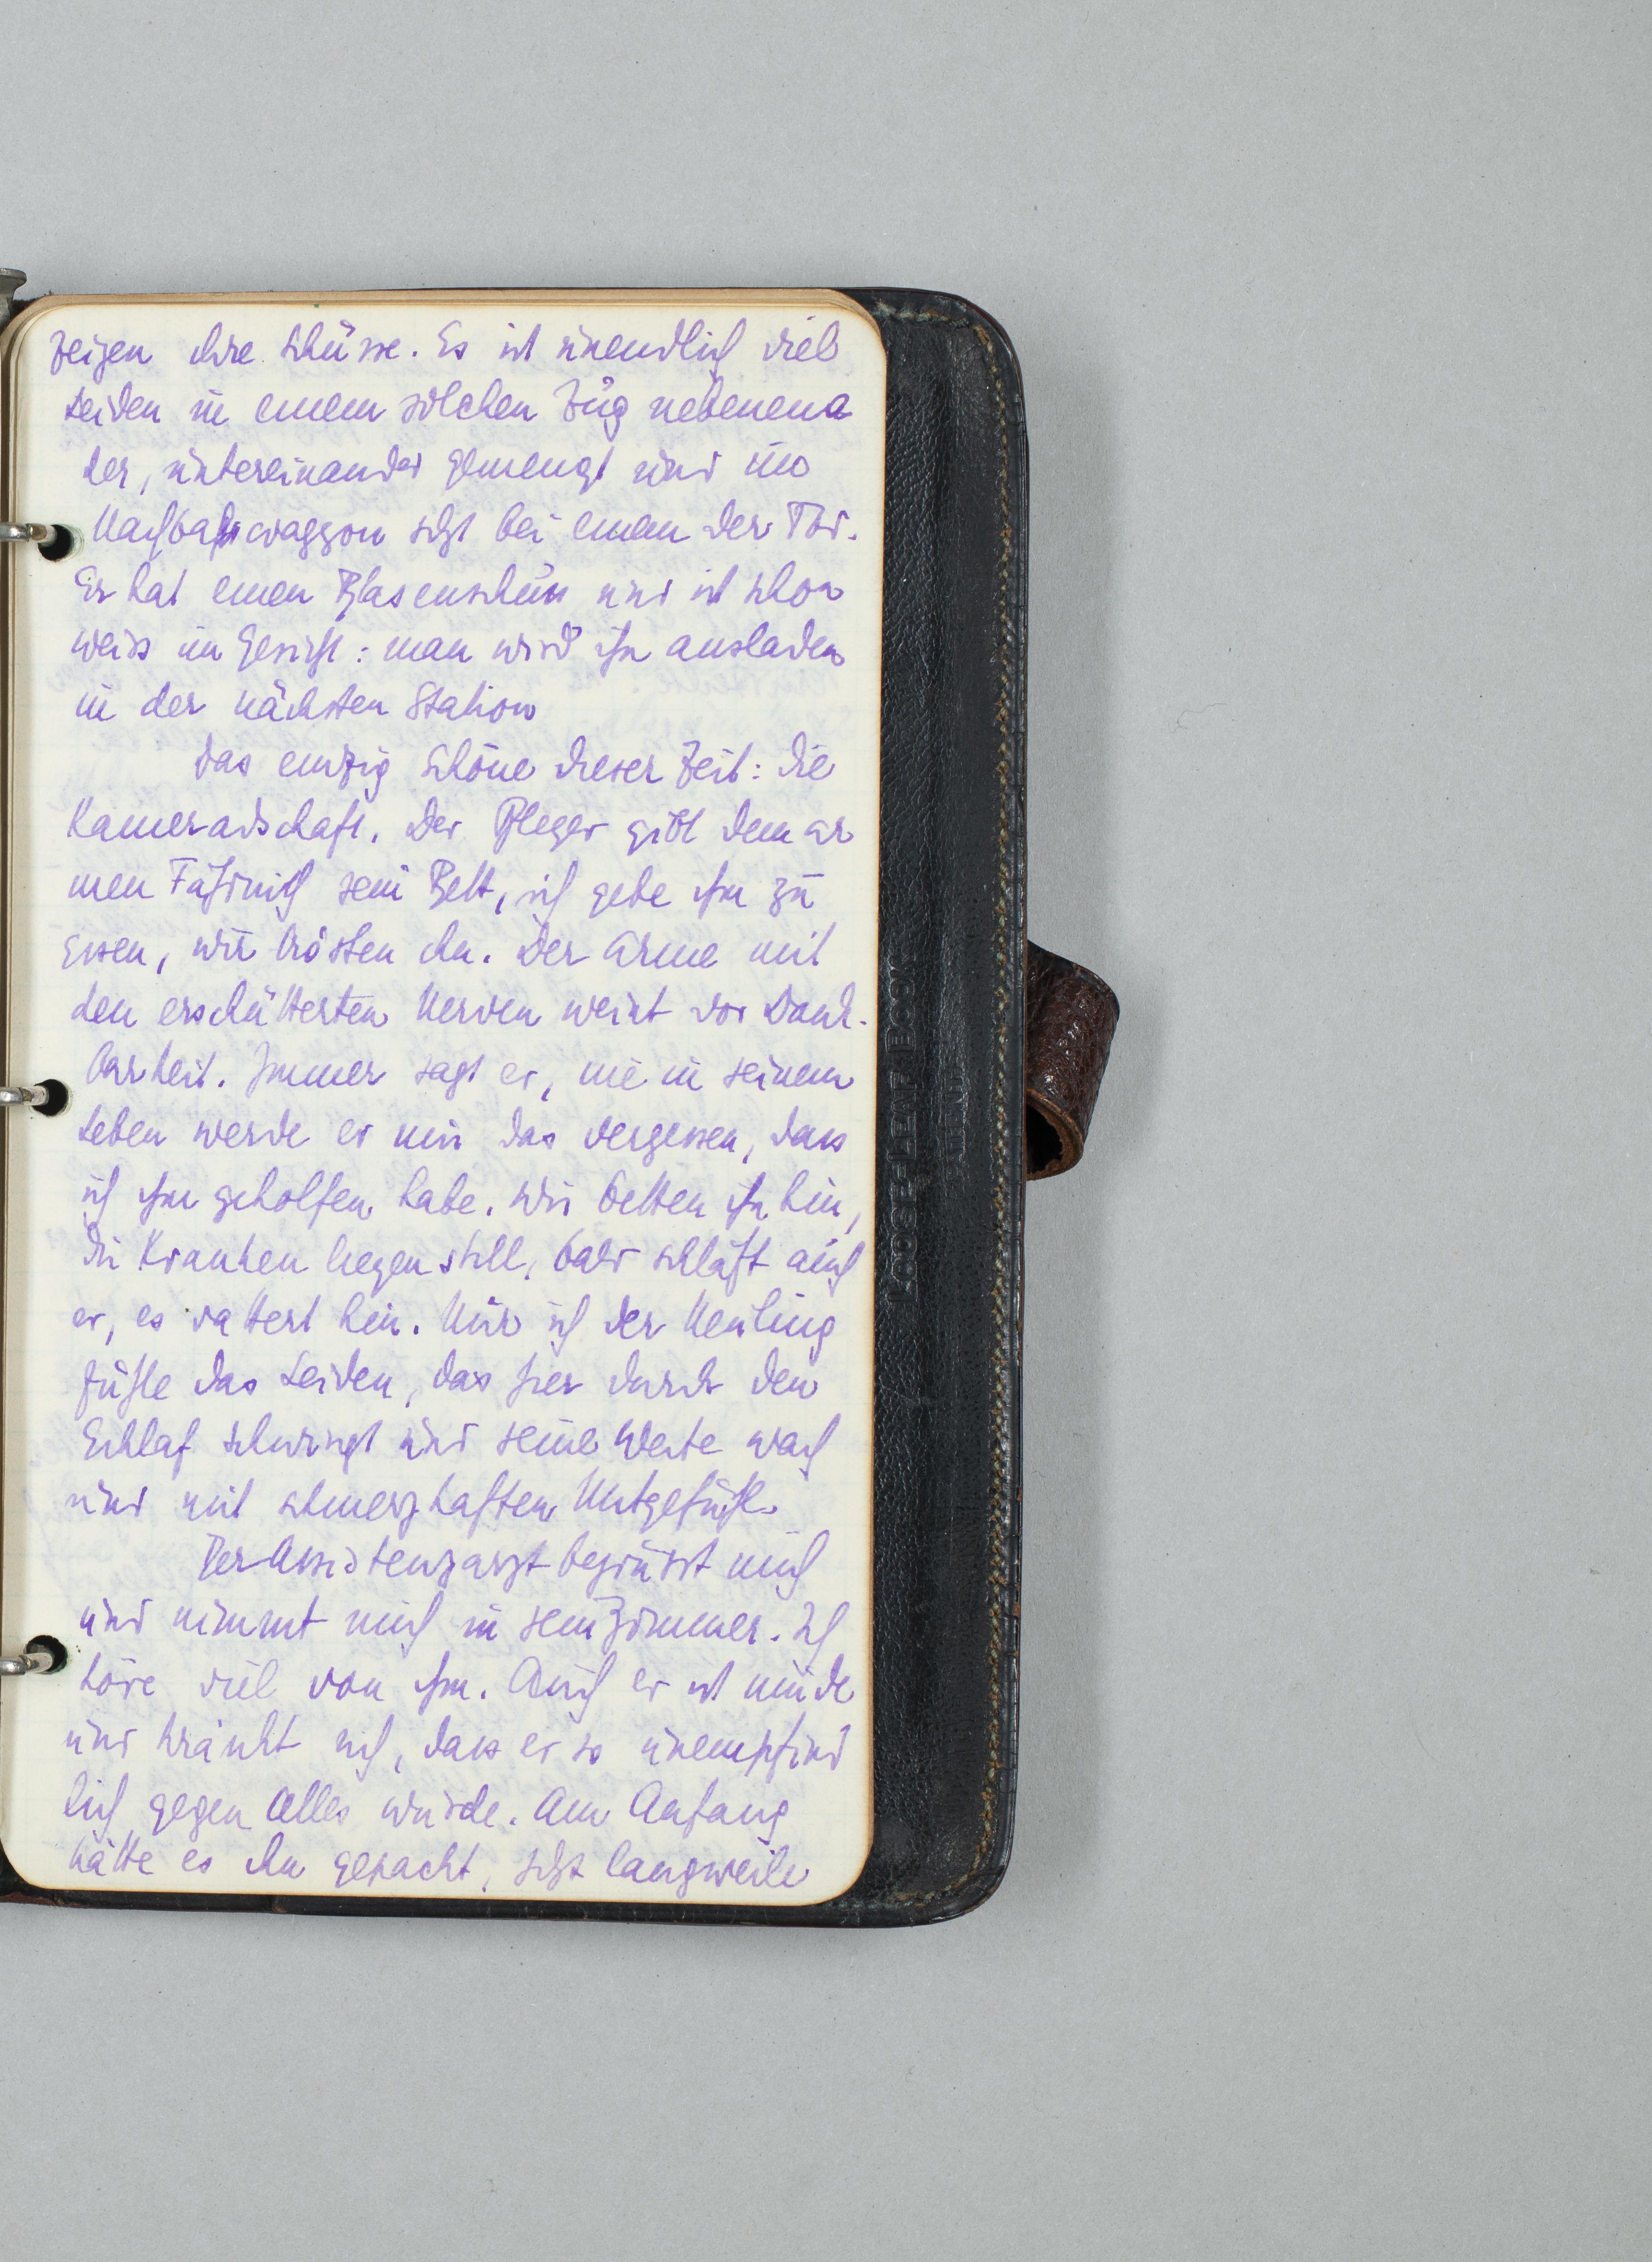 zeigen ihre Schüsse. Es ist unendlich viel
Leiden in einem solchen Zug nebeneina
der, untereinander gemengt und im
Nachbarwaggon sitzt bei einem der Tod.
Er hat einen Blasenschuss und ist schon
weiss im Gesicht: man wird ihn ausladen
in der nächsten Station
Das einzig Schöne dieser Zeit: die
Kameradschaft. Der Pfleger gibt dem ar
men Fähnrich sein Bett, ich gebe ihm zu
Essen, wir trösten ihn. Der Arme mit
den erschütterten Nerven weint vor Dank-
barkeit. Immer sagt er, nie in seinem
Leben werde er mir das vergessen, dass
ich ihm geholfen habe. Wir betten ihn hin,
die Kranken liegen still, bald schläft auch
er, es rattert hin. Nur ich der Neuling
fühle das Leiden, das hier durch den
Schlaf schwingt und seine Worte wach
und mit schmerzhaften Mitgefühl.
Der Assistenzarzt begrüsst mich
und nimmt mich in sein Zimmer. Ich
höre viel von ihm. Auch er ist müde
und kränkt sich, dass er so unempfind
lich gegen Alles wurde. Am Anfang
hätte es ihn gepackt, jetzt langweile
LOOSE-LEAF BOOK